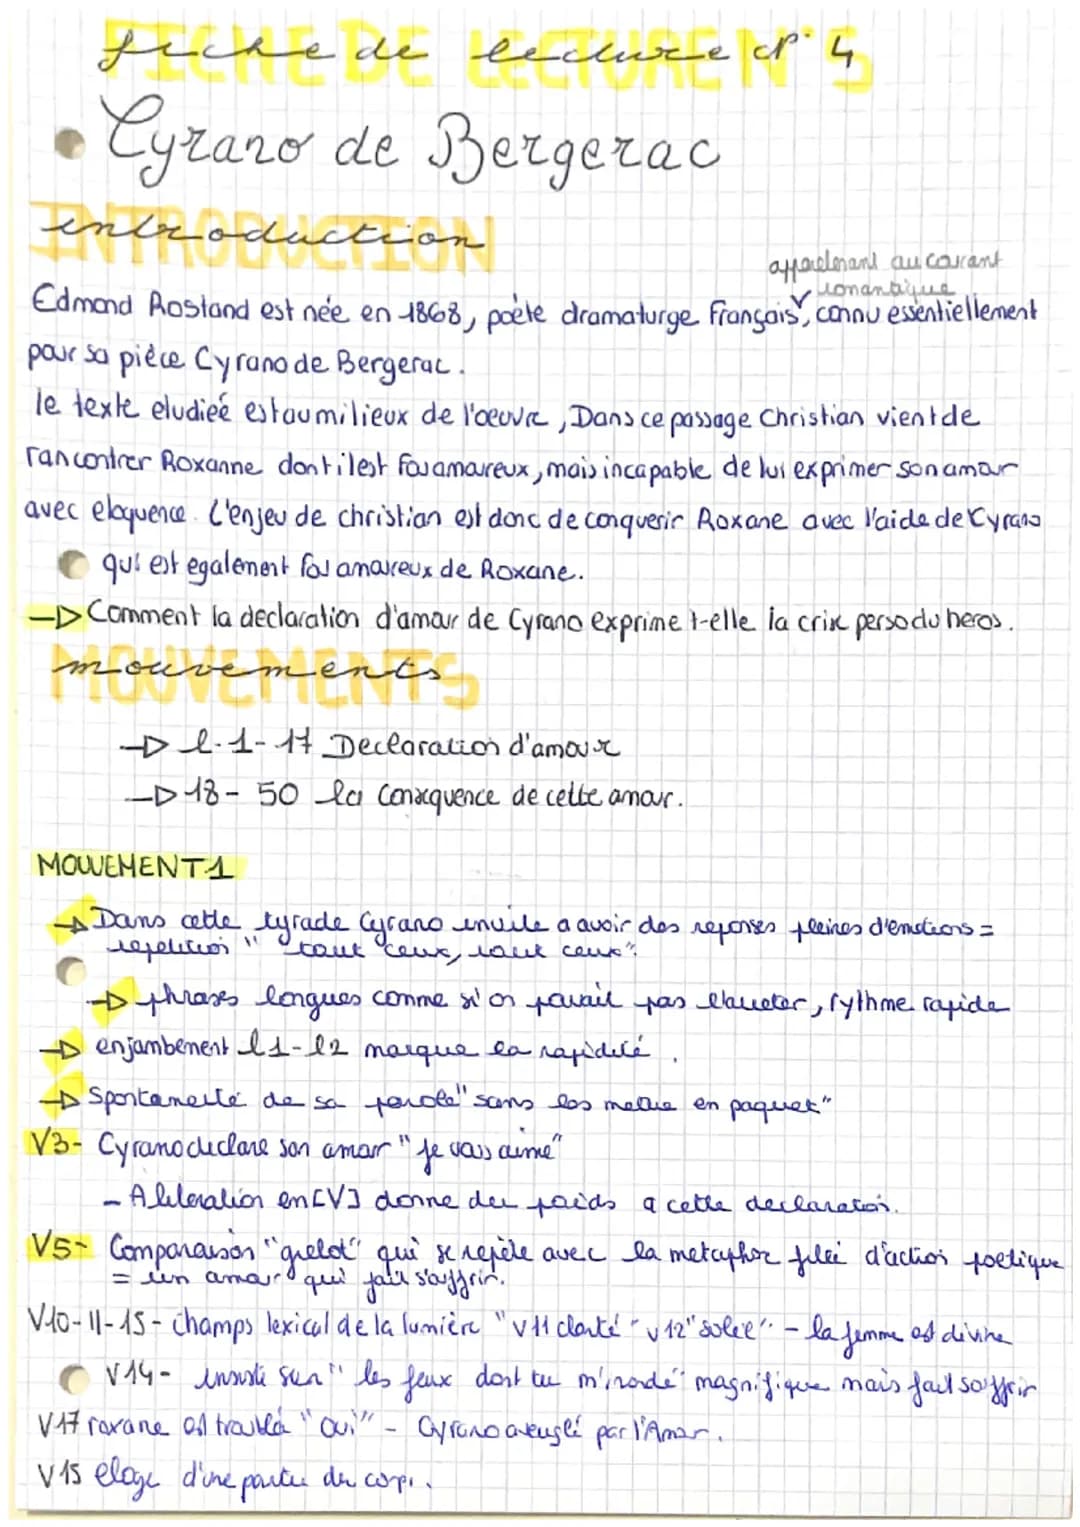 FICHE DE LECTURE N°5
fiche de lecture n° 4
• Cyrano de Bergerac
INTRODUCTION
introduction
appartenant au courant
romantique
Edmond Rostand est née en 1868, poète dramaturge français, connu essentiellement
pour sa pièce Cyrano de Bergerac.
le texte eludieé est au milieux de l'oeuvre, Dans ce passage Christian vient de
rancontrer Roxanne dont il est fou amoureux, mais incapable de lui exprimer son amour
avec eloquence. L'enjeu de christian est donc de conquerir Roxane avec l'aide de Cyrano
qui est egalement fou amoureux de Roxane.
→ Comment la declaration d'amour de Cyrano exprime t-elle la crise perso du heros.
MOUVEMENTS
mouvements
→ l.1-17 Declaration d'amour
→ 18-50 la consequence de cette amour.
MOUVEMENT 1
→ Dans cette tyrade Cyrano invite a avoir des reponses pleines d'emotions =
repetition "tout ceux, tout ceux".
→ phrases longues comme si on pouvait pas l'arreter, rythme rapide
→ enjambement l1-l2 marque la rapidité.
→ Spontaneité de sa parole "sans les mettre en paquet"
V3- Cyrano declare son amour "je vous aime"
- Aliteration en [V] donne du poids a cette declaration.
V5- Comparaison "grelot" qui se repète avec la metaphor filée d'action poetique
= un amour qui fait souffrir.
V10-11-15- champs lexical de la lumière "v11 clarté" v12 "soleil" - la femme est divine
V14- insiste sur "les feux dont tu m'inonde" magnifique mais fait souffrir
V17 roxane est troublé "oui" - Cyrano aveuglé par l'Amour.
V15 eloge d'une partie du corps.